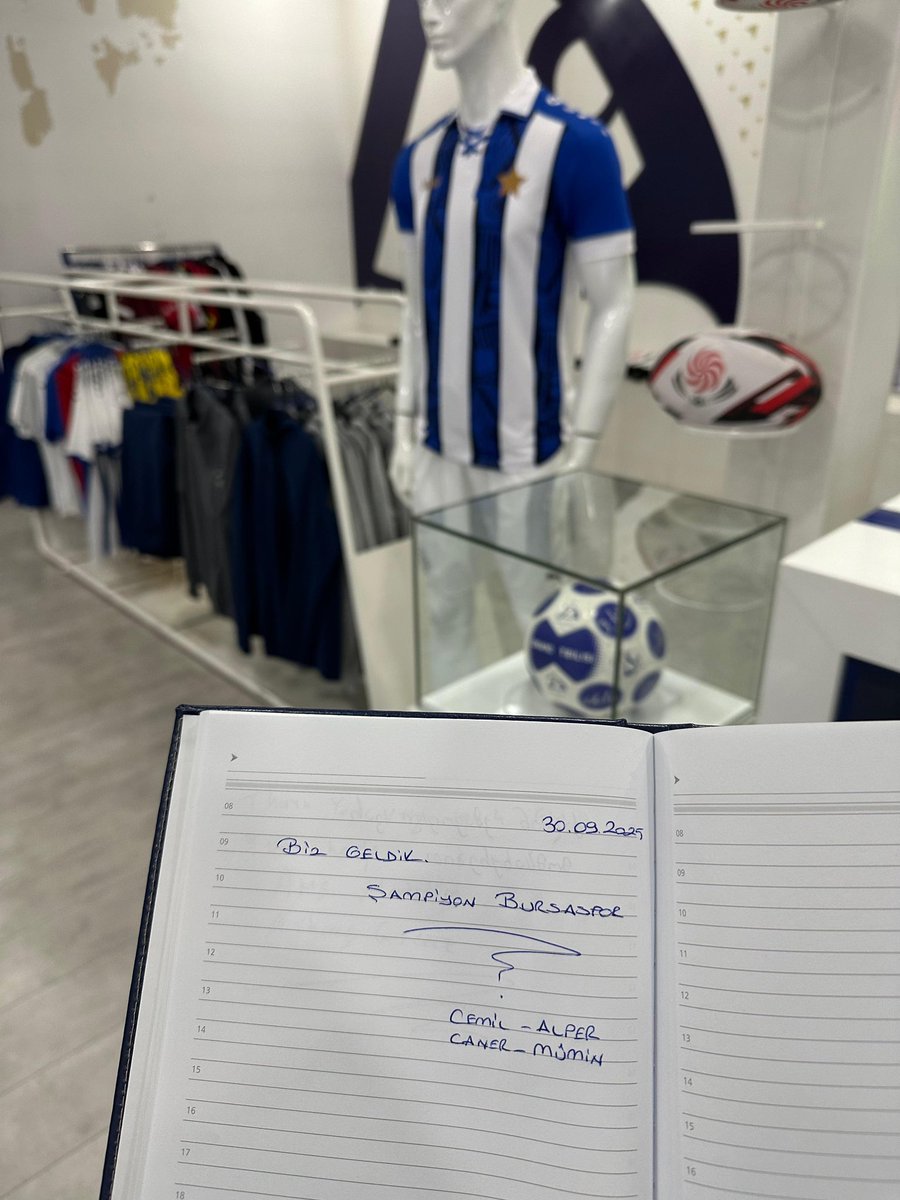 30.09.2025
BİZ GELDİK.
ŞAMPİYON BURSASPOR
CEMİL - ALPER
CANER - MÜMİN
08
09
10
11
12
13
14
15
16
17
18
08
09
10
11
12
13
14
15
16